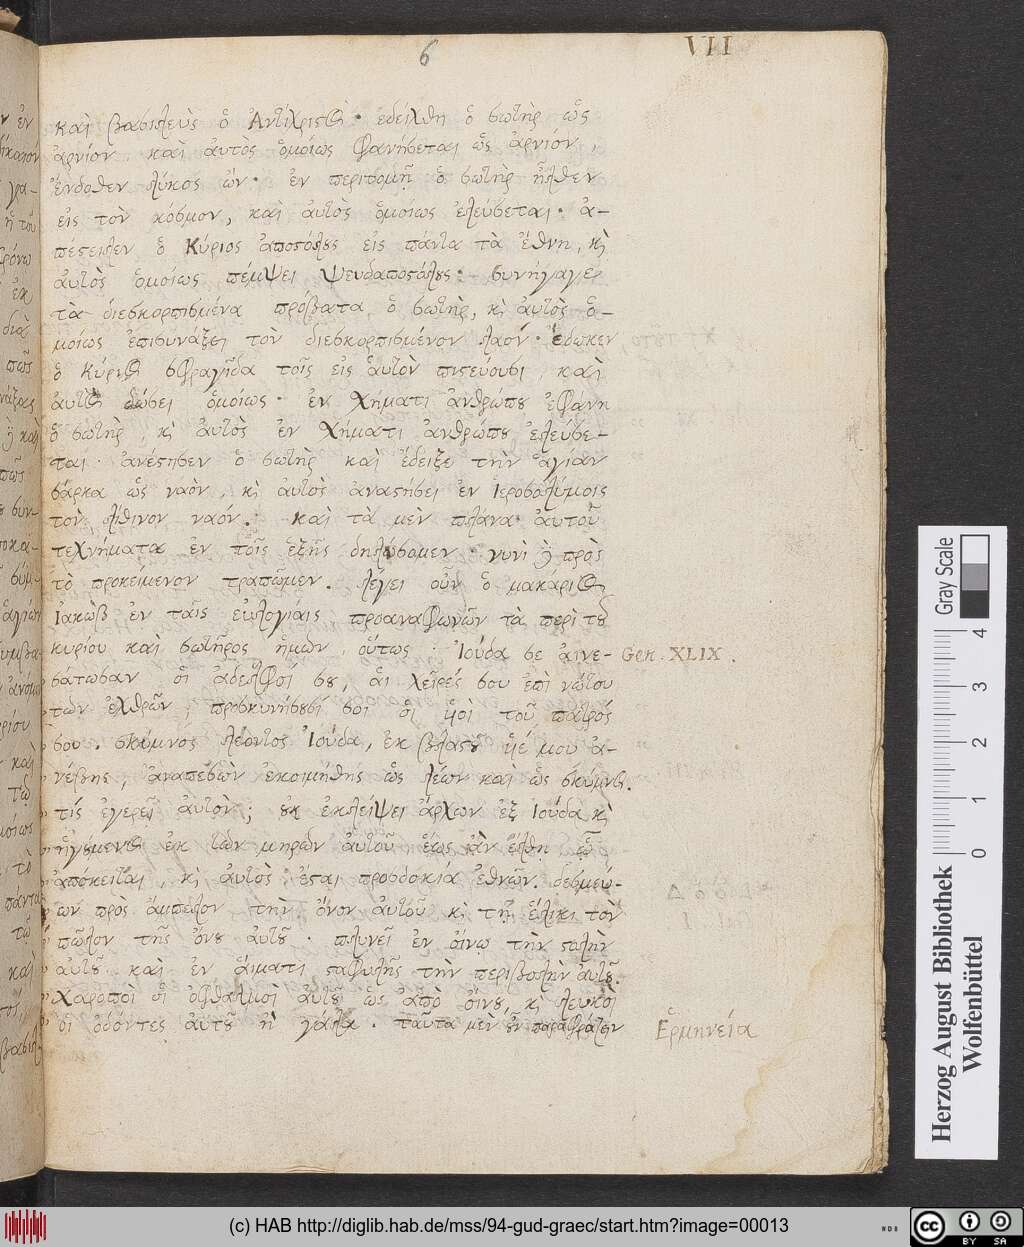 6
VII
καὶ βασιλεὺς ὁ Ἀντίχριστος· ἐδείχθη ὁ σωτὴρ ὡς
ἀρνίον, καὶ αὐτὸς ὁμοίως φανήσεται ὡς ἀρνίον,
ἔνδοθεν λύκος ὤν· ἐν περιτομῇ ὁ σωτὴρ ἦλθεν
εἰς τὸν κόσμον, καὶ αὐτὸς ὁμοίως ἐλεύσεται· ἀ-
πέστειλεν ὁ Κύριος ἀποστόλους εἰς πάντα τὰ ἔθνη, κὶ
αὐτὸς ὁμοίως πέμψει ψευδαποστόλους· συνήγαγε
τὰ διεσκορπισμένα πρόβατα ὁ σωτὴρ, κὶ αὐτὸς ὁ-
μοίως ἐπισυνάξει τὸν διεσκορπισμένον λαόν· ἔδωκεν
ὁ Κύριος σφραγῖδα τοῖς εἰς αὐτὸν πιστεύουσι, καὶ
αὐτὸς δώσει ὁμοίως· ἐν χήματι ἀνθρώπου ἐφάνη
ὁ σωτὴρ, κὶ αὐτὸς ἐν χήματι ἀνθρώπου ἐλεύσε-
ται· ἀνέστησεν ὁ σωτὴρ καὶ ἔδειξε τὴν ἁγίαν
σάρκα ὡς ναὸν, κὶ αὐτὸς ἀναστήσει ἐν Ἱεροσολύμοις
τὸν λίθινον ναόν. καὶ τὰ μὲν πλάνα αὐτοῦ
τεχνήματα ἐν τοῖς ἑξῆς δηλώσομεν· νυνὶ δὲ πρὸς
τὸ προκείμενον τραπῶμεν. λέγει οὖν ὁ μακάριος
Ἰακὼβ ἐν ταῖς εὐλογίαις προαναφωνῶν τὰ περὶ τοῦ
κυρίου καὶ σωτῆρος ἡμῶν, οὕτως· Ἰούδα σε αἰνε-
Gen. XLIX.
σάτωσαν οἱ ἀδελφοί σου, αἱ χεῖρές σου ἐπὶ νώτου
τῶν ἐχθρῶν, προσκυνήσουσί σοι οἱ υἱοὶ τοῦ πατρός
σου. σκύμνος λέοντος Ἰούδα, ἐκ βλαστοῦ υἱέ μου ἀ-
νέβης, ἀναπεσὼν ἐκοιμήθης ὡς λέων καὶ ὡς σκύμνος.
τίς ἐγερεῖ αὐτὸν; οὐκ ἐκλείψει ἄρχων ἐξ Ἰούδα κὶ
ἡγούμενος ἐκ τῶν μηρῶν αὐτοῦ, ἕως ἂν ἔλθῃ ᾧ
ἀπόκειται, κὶ αὐτὸς ἔσται προσδοκία ἐθνῶν. δεσμεύ-
ων πρὸς ἄμπελον τὴν ὄνον αὐτοῦ κὶ τῇ ἕλικι τὸν
πῶλον τῆς ὄνου αὐτοῦ. πλυνεῖ ἐν οἴνῳ τὴν στολὴν
αὐτοῦ καὶ ἐν αἵματι σταφυλῆς τὴν περιβολὴν αὐτοῦ.
Χαροποὶ οἱ ὀφθαλμοὶ αὐτοῦ ὡς ἀπὸ οἴνου, κὶ λευκοὶ
οἱ ὀδόντες αὐτοῦ ἢ γάλα. ταῦτα μὲν οὖν παραφράζειν
Ἑρμηνεία
Gray Scale
0 1 2 3 4
Herzog August Bibliothek
Wolfenbüttel
(c) HAB http://diglib.hab.de/mss/94-gud-graec/start.htm?image=00013
cc BY SA